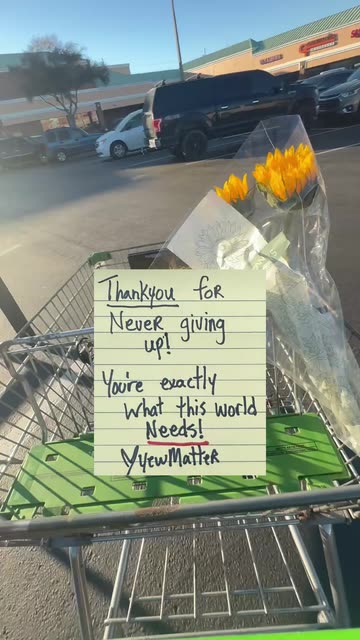 Thankyou for
Never giving
up!
You're exactly
what this world
Needs!
YyewMatter